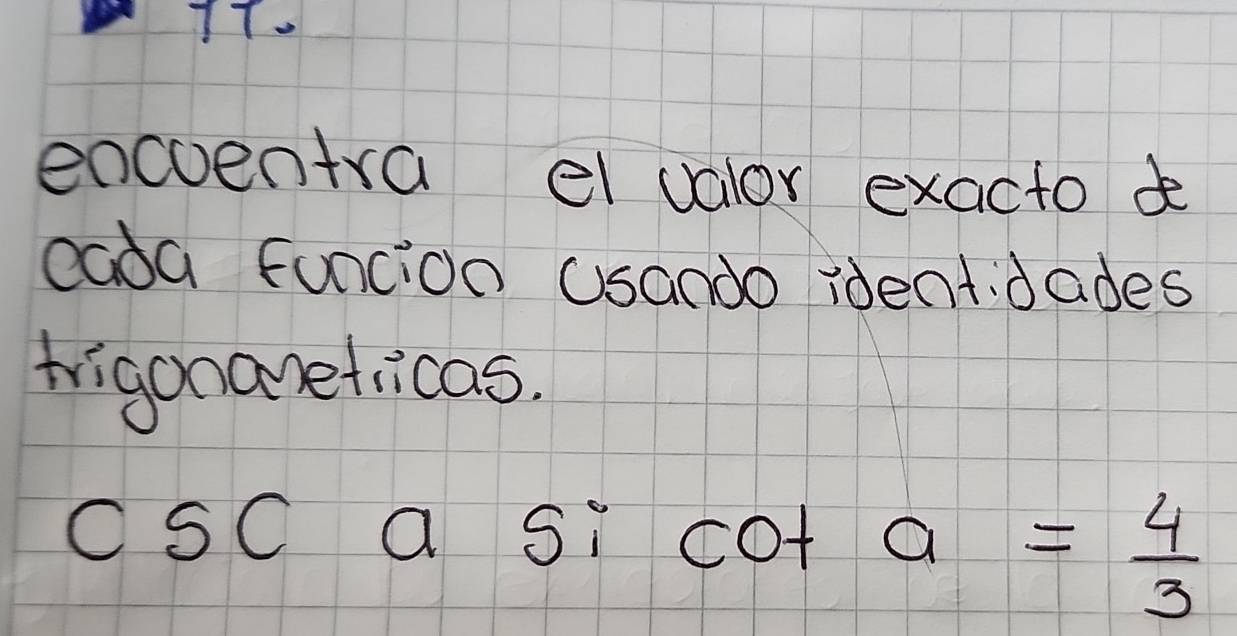 encuentra el valor exacto de
cada función usando identidades
trigonometricas.
csc a si cot a = 4/3